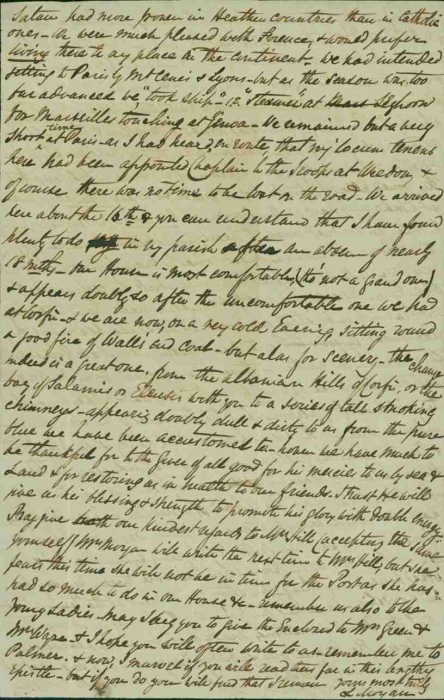 Satan had more power in Heathen countries than in Catholic
ones - We were much pleased with Florence, & would prefer
living there to any place in the continent - we had intended
getting to Paris by Mt Cenis & Lyons - but as the season was too
far advanced we "took ship" i.e. "steamer" at Leghorn
for Marseilles touching at Genoa - We remained but a very
short time at Paris - as I had heard, en route, that my "locum tenens
here" had been appointed Chaplain to the Troops at Weedon, &
of course there was no time to be lost on the road - We arrived
here about the 16th & you can understand that I have found
plenty to do in my parish after an absence of nearly
18 mths - our House is most comfortable, (tho not a grand one)
& appears doubly so after the uncomfortable one we had
at Corfu - & we are now, on a very cold Evening sitting round
a good fire of Walls end Coal - but alas for scenery - the change
indeed is a great one. from the Albanian Hills of Corfu, or the
bay of Salamis or Eleusis with you to a series of tall smoking
chimneys - appearing doubly dull & dirty to us from the pure
blue we have been accustomed to - however we have much to
be thankful for to the Giver of all good for his mercies to us by sea &
Land & for restoring us in health to our friends. I trust He will
give us his blessing & strength to promote his glory with double energy -
Pray give our kindest regards to Mrs Hill, (accepting the same
yourself) Mrs Morgan will write the next time to Mrs Hill, but she
fears this time she will not be in time for the Post as she has
had so much to do in our House &c - remember us also to the
young Ladies. May I beg you to give the Enclosed to Mrs Green &
& I hope you will often write to us remember me to
Palmer. & now, I marvel if you will read thus far in this lengthy
Epistle - but if you do you will find that I remain yours most truly
L Morgan